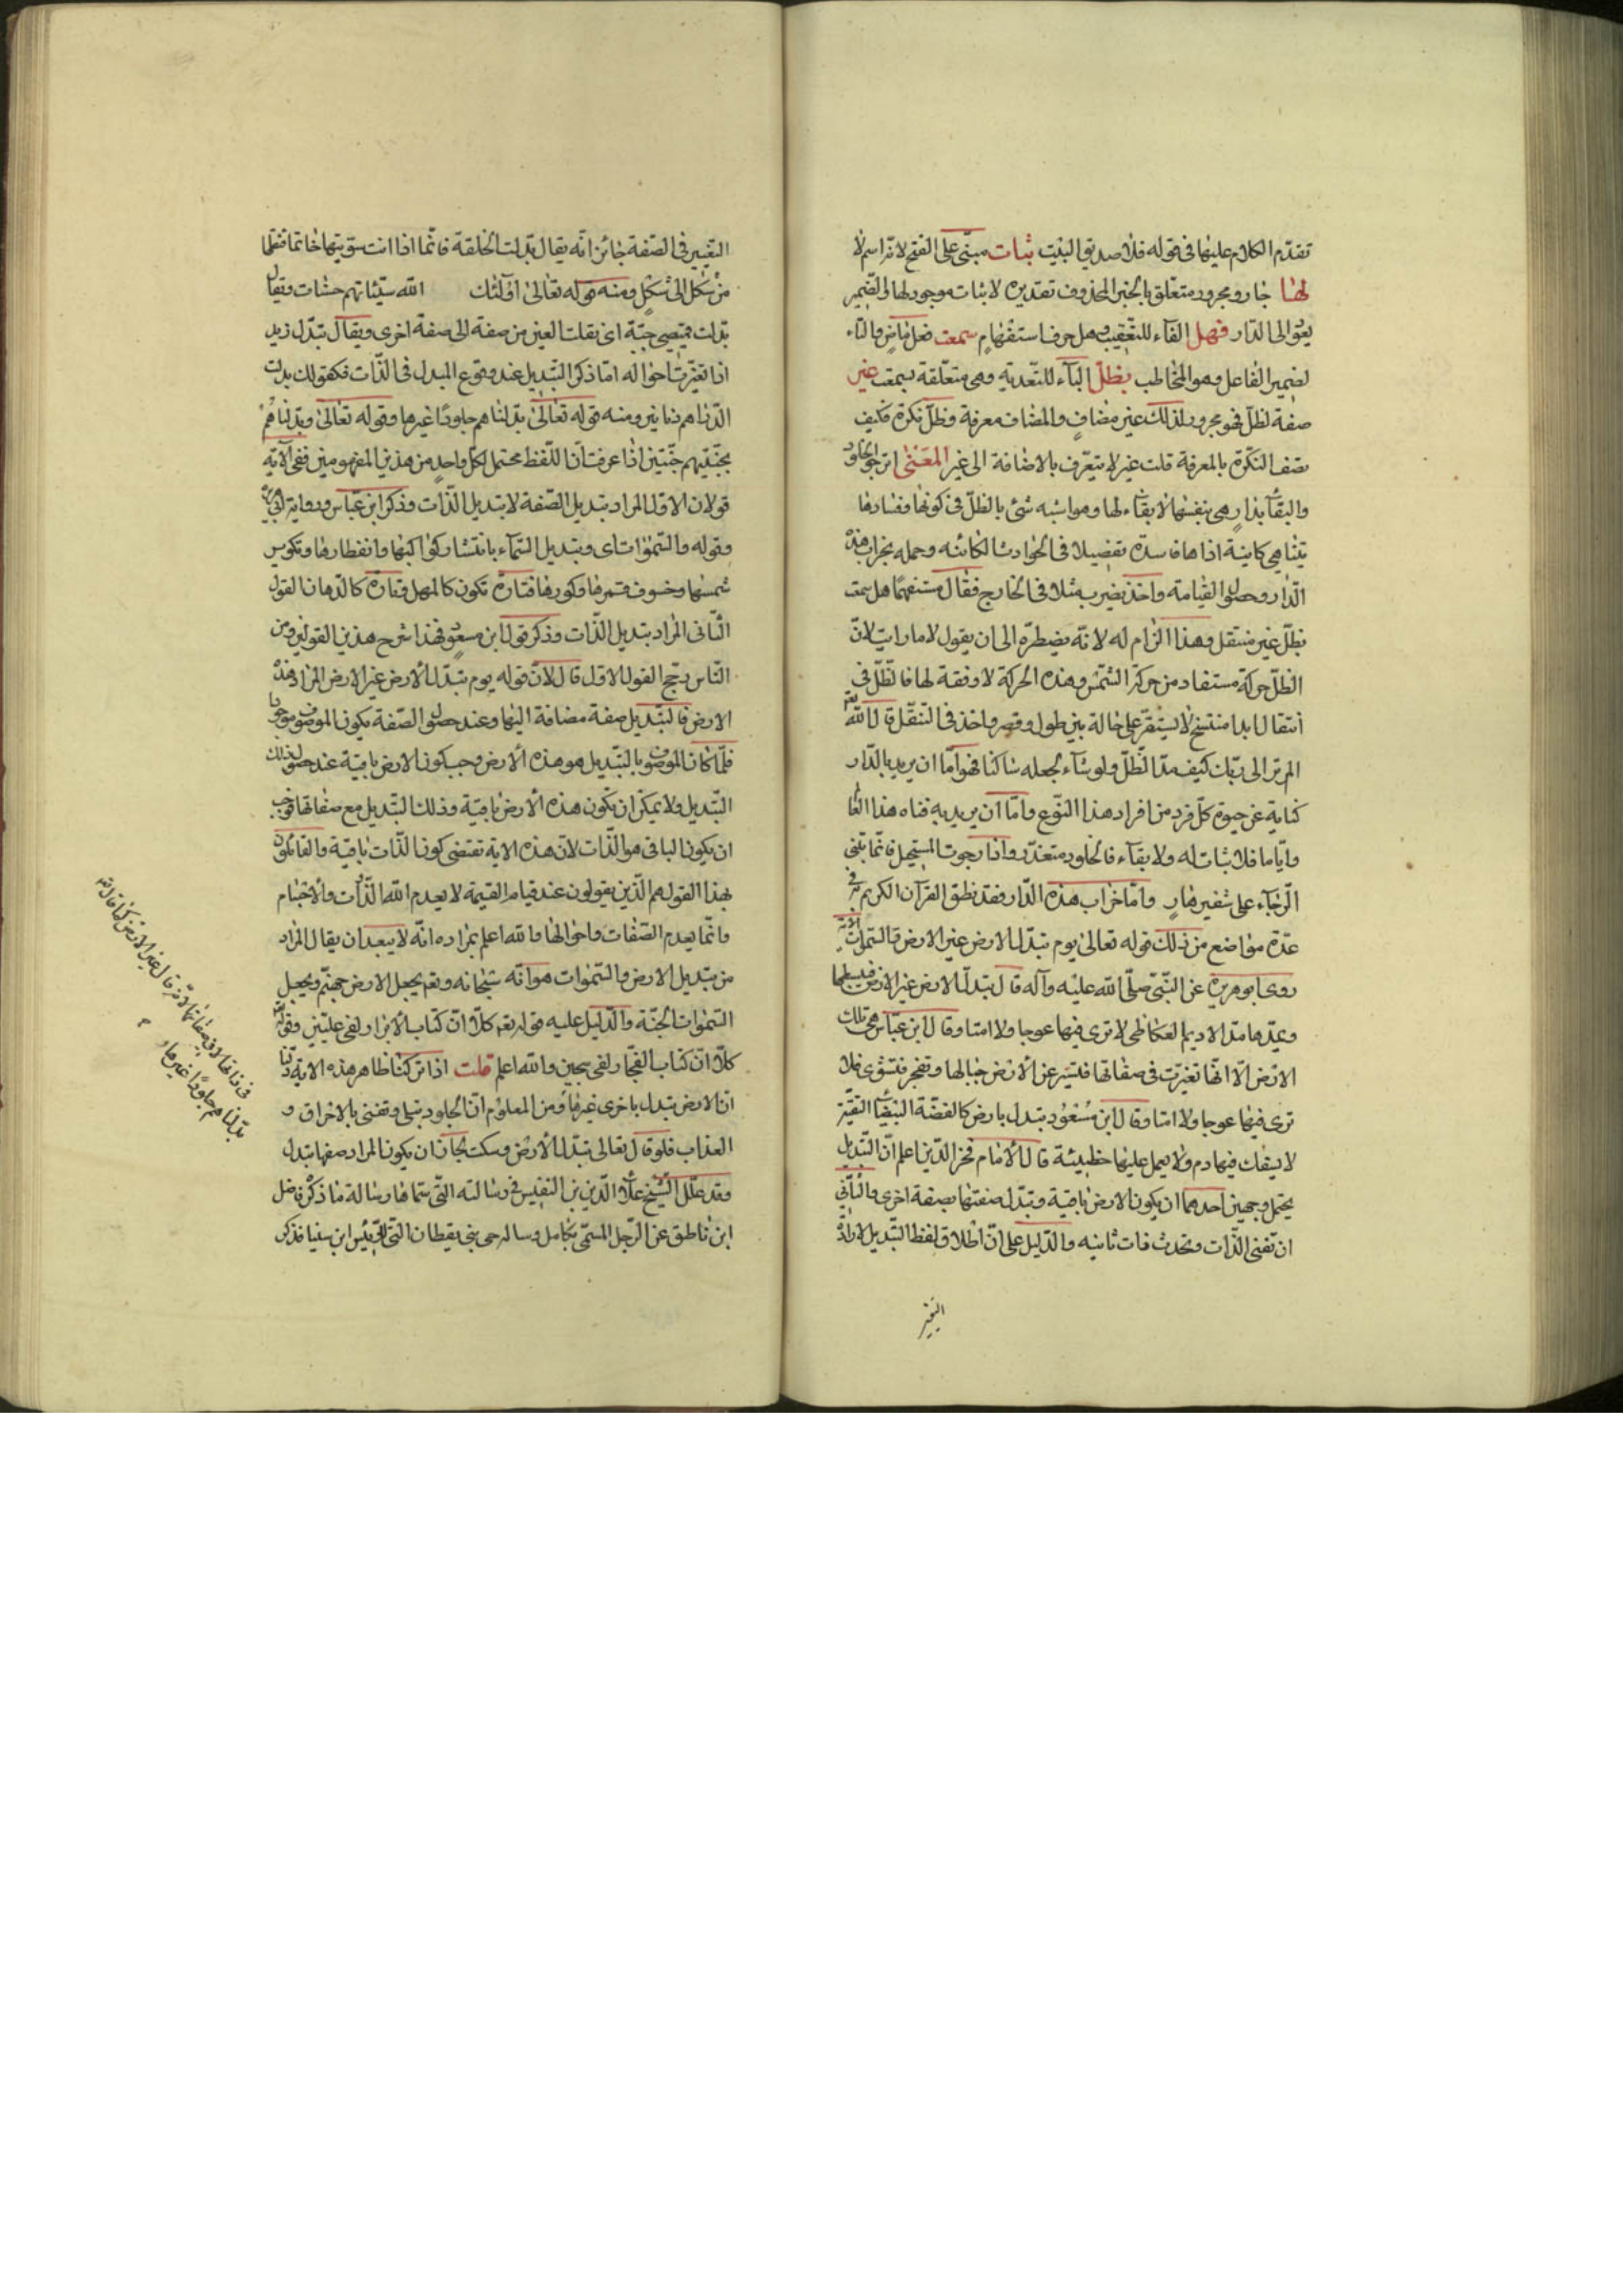 تقدّم الكلام عليها فى قوله فلا صديق البيت ثبات مبنىّ على الفتح لانّه اسم لا
لها جار ومجرور متعلق بالخبر المحذوف تقديره لا ثبات موجود لها والضمير
يعود الى الدار فهل الفاء للتعقيب وهل حرف استفهام سمعت فعل ماض والتاء
لضمير الفاعل وهو المخاطب بظلّ الباء للتعدية وهى متعلقة بسمعت غير
صفة لظلّ فهو مجرور لذلك غير مضاف والمضاف معرفة وظلّ نكرة فكيف
تصف النكرة بالمعرفة قلت غير لا يتعرّف بالاضافة الى غير المعنى اترجو الخلود
والبقاء بدار هى بنفسها لا بقاء لها وهو اشبه شئ بالظلّ فى كونها وفسادها
الدار وحصول القيامة واخذ يضرب مثلا فى الخارج فقال مستفهما هل سمعت
بظلّ غير منتقل وهذا الزام له لانّه يضطرّه الى ان يقول لا ما رايت لانّ
الظلّ حركة مستفاد من حركة الشمس وهذه الحركة لا وقفة لها فالظلّ فى
انتقال ابدا منتسخ لا يستقرّ على حالة بين طول وقصر واخذ فى التنقّل قال الله تعم
الم تر الى ربّك كيف مدّ الظلّ ولو شاء لجعله ساكنا فهو امّا ان يريد بالدار
كناية عن حيوة كلّ فرد من افراد هذا النوع وامّا ان يريد به فناء هذا العا
وايّاما فلا ثبات له ولا بقاء فالخلود متعذّر واذا رجوت المستحيل فانّما تبنى
الرجاء على شفير هار وامّا خراب هذه الدار فقد نطق القرآن الكريم به فى
عدّة مواضع من ذلك قوله تعالى يوم تبدّل الارض غير الارض والسموات الآية
روى ابو هريرة عن النبىّ صلّى الله عليه وآله قال تبدّل الارض غير الارض فيبسطها
ويمدّها مدّ الاديم العكاظى لا ترى فيها عوجا ولا امتا وقال ابن عبّاس هى تلك
الارض الّا انّها تغيّرت فى صفاتها فتسير عن الارض جبالها وتفجر فتسوّى فلا
ترى فيها عوجا ولا امتا وقال ابن مسعود تبدل بارض كالفضّة البيضاء النقيّة
لا يسفك فيها دم ولا يعمل عليها خطيئة قال الامام فخر الدين اعلم انّ التبديل
يحتمل وجهين احدهما ان يكون الارض باقية وتبدّل صفتها بصفة اخرى والثانى
ان تفنى الذات وتحدث ذات ثانيه والدليل على انّ اطلاق لفظ التبديل لارادة
التغيير
التغيير فى الصفة جائز انّه يقال بدّلت الخلقة خاتما اذا انت سوّيتها خاتما فنقلتها
من شكل الى شكل ومنه قوله تعالى اولئك الله سيّئاتهم حسنات ويقال
بدّلت قميصى جبّة اى نقلت العين من صفة الى صفة اخرى ويقال تبدّل زيد
اذا تغيّرت احواله امّا ذكر التبديل عند وقوع المبدل فى الذات فكقولك بدلت
الدراهم دنانير ومنه قوله تعالى بدّلناهم جلودا غيرها وقوله تعالى وبدّلناهم
بجنّتيهم جنّتين اذا عرفت ان اللفظ محتمل لكلّ واحد من هذين المفهومين ففى الآية
قولان الاول المراد تبديل الصفة لا تبديل الذات وذكر ابن عبّاس
وقوله والسموات اى وتبديل السماء بانتشار كواكبها وانفطارها وتكوير
شمسها وخسوف قمرها وكورها فتارة تكون كالمهل وتارة كالدهان القول
الثانى المراد تبديل الذات وذكر قول ابن مسعود فهذا شرح هذين القولين ومن
الناس رجّح القول الاول قال لانّ قوله يوم تبدّل الارض غير الارض المراد هذه
الارض والتبديل صفة مضافة اليها وعند حصول الصفة يكون الموصوف موجودا
فلمّا كان الموصوف بالتبديل هو هذه الارض وجب كون الارض باقية عند حصول ذلك
التبديل ولا يمكن ان تكون هذه الارض باقية وذلك التبديل مع صفاتها فوجب
ان يكون الباقى هو الذات لانّ هذه الاية تقتضى كون الذات باقية والقائلون
بهذا القول هم الذين يقولون عند قيام القيمة لا يعدم الله الذات والاجسام
وانّما يعدم الصفات واحوالها والله اعلم بمراده انّه لا يبعد ان يقال المراد
من تبديل الارض والسموات هو انّه سبحانه وتعم يجعل الارض جهنّم ويجعل
السموات الجنّة والدليل عليه قوله تعم كلّا انّ كتاب الابرار لفى علّيّين وقوله
كلّا انّ كتاب الفجّار لفى سجين والله اعلم قلت اذا تركنا ظاهر هذه الاية
انّ الارض تبدل باخرى غيرها ومن المعلوم انّ الجلود تبلى وتفنى بالاحراق و
العذاب فلو قال تعالى تبدّل الارض وسكت لجاز ان يكون المراد صفها تبدل
وقد علّل الشيخ علاء الدين بن النفيس فى رسالته التى سمّاها رسالة ما ذكره فاضل
ابن ناطق عن الرجل المسمّى بكامل وساله حى بن يقظان التى للرئيس ابن سينا فذكر
فى ذاتها لا فى صفاتها لانه قال غير الارض كما قال الله
بدّلناهم جلودا غيرها